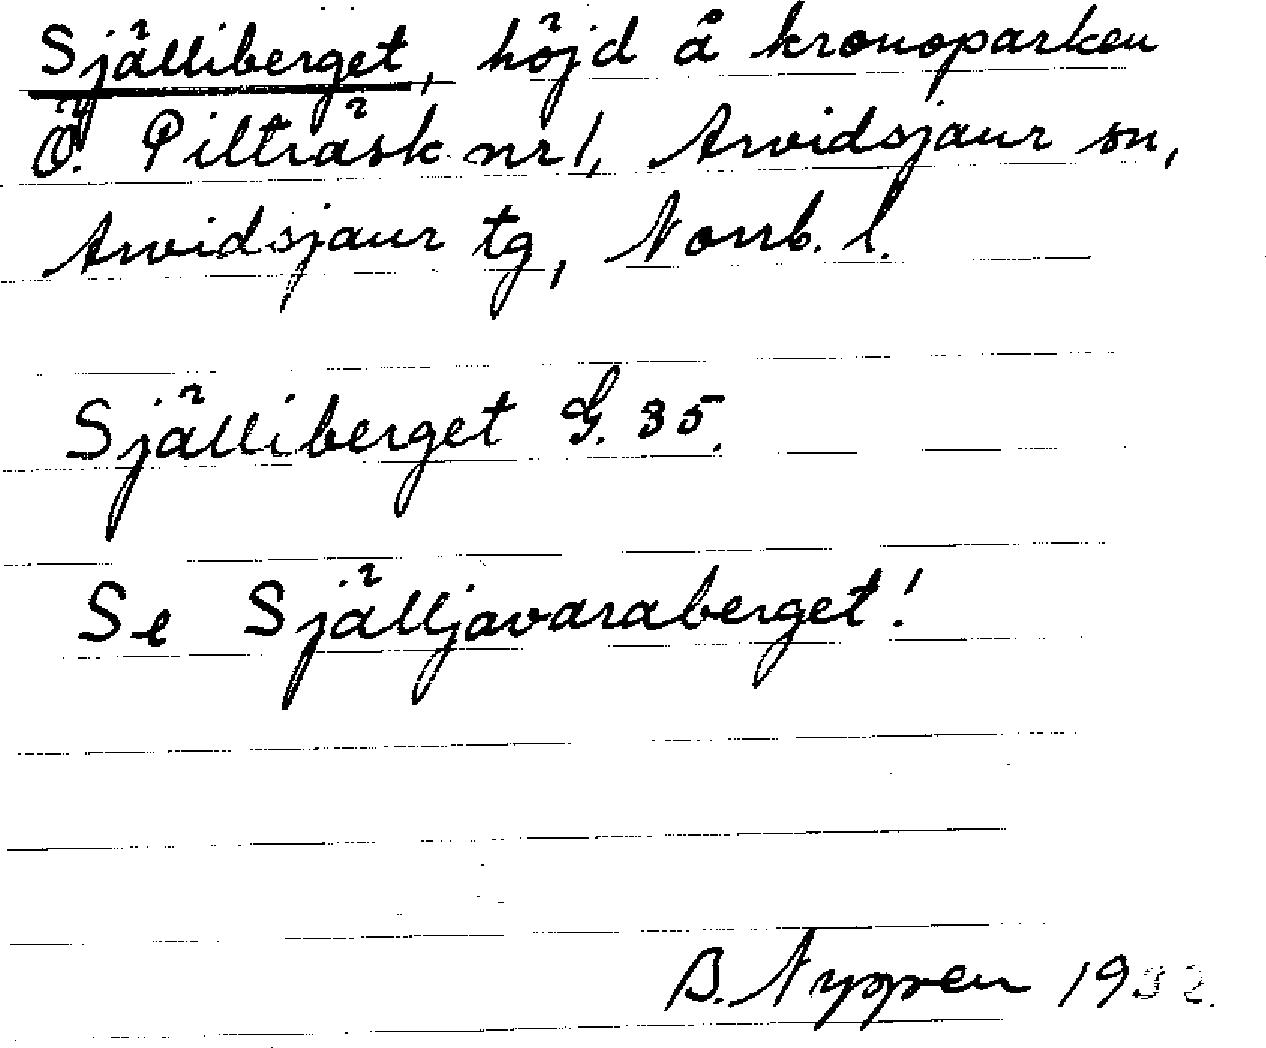 Själliberget, höjd å kronoparken
Ö. Pilträsk nr 1, Arvidsjaur sn,
Arvidsjaur tg, Norrb. l.
Själliberget G. 35.
Se Själljavaraberget!
B. 1932.